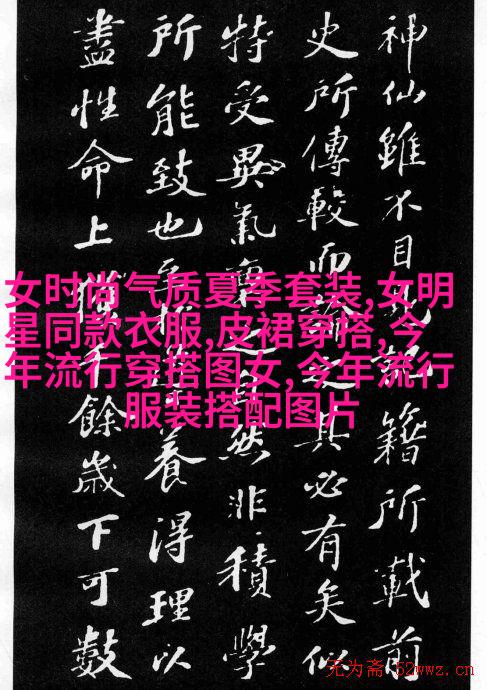 神仙雖不目見記籍所載前
史所傳較而論之其必有矣似
特受異氣稟之自然非積學
所能致也至於導養得理以
盡性命上獲千餘歲下可數
女时尚气质夏季套装,女明
星同款衣服,皮裙穿搭,今
年流行穿搭图女,今年流行
服装搭配图片
无为斋·52wwz.cn